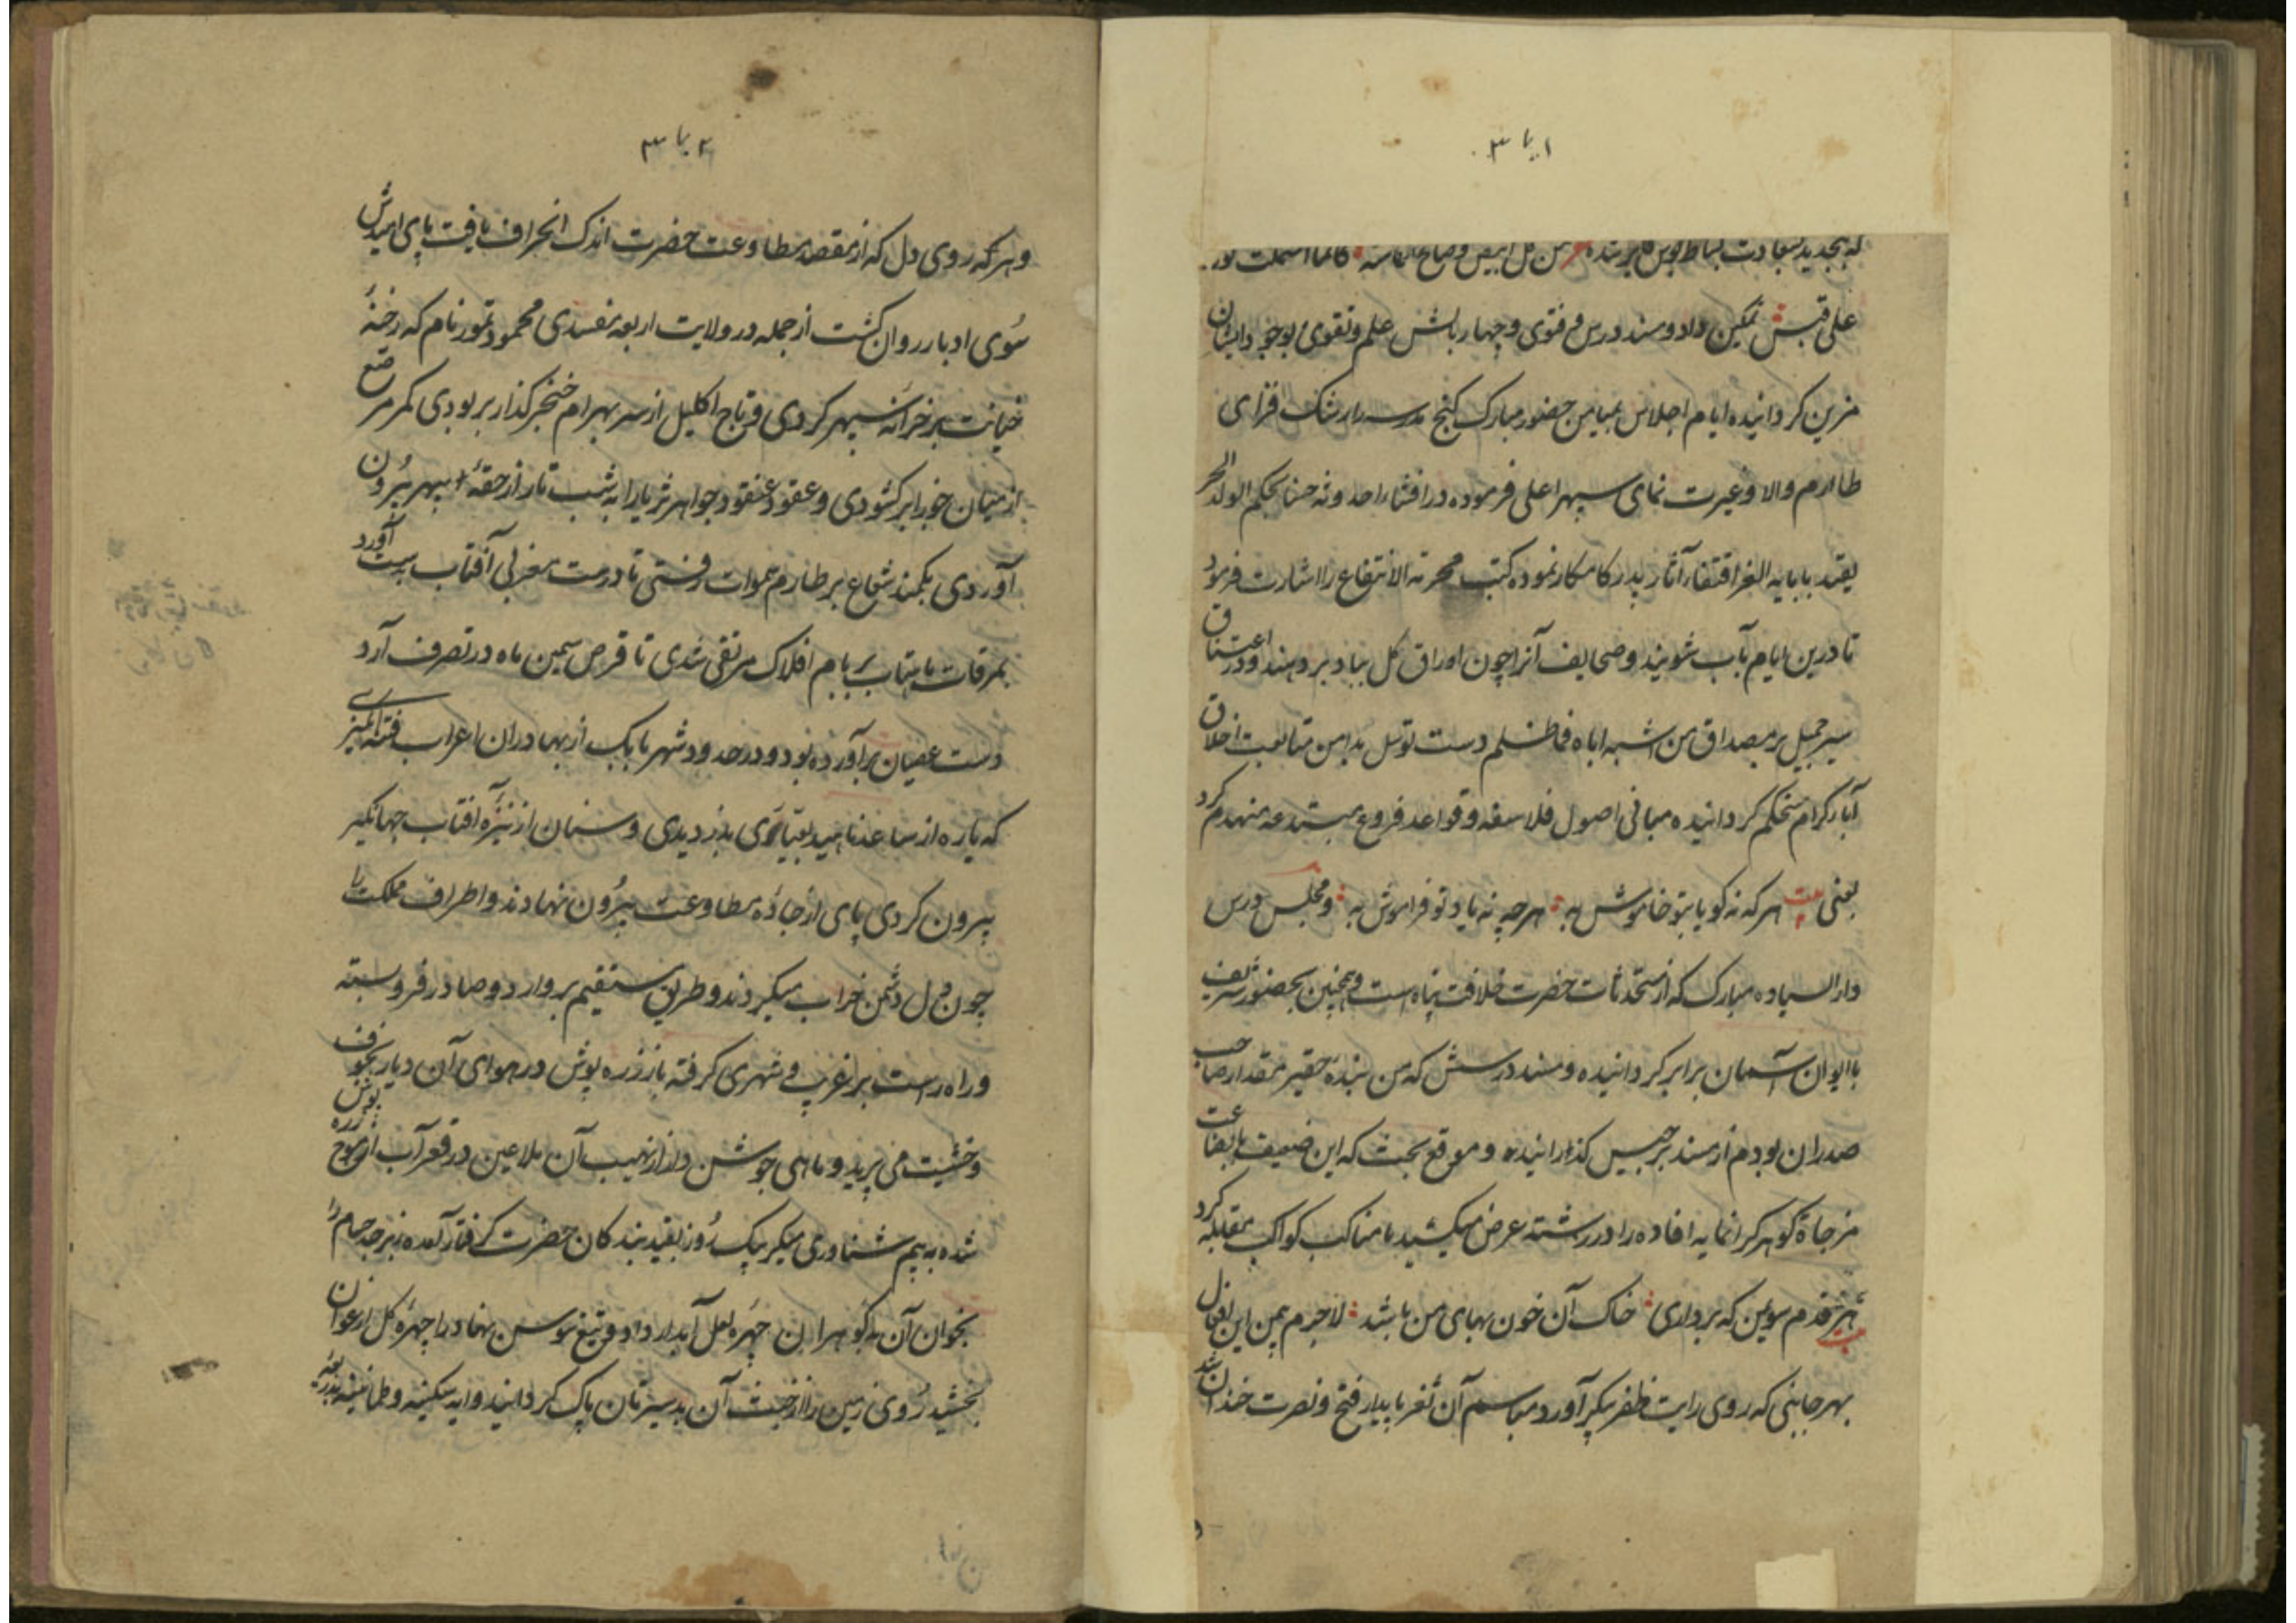 ۱ یا ۳
که بتجدید بسعادت بساط بوس
علی قبس تمکین داد و مسند درس و فتوی و چهار بالش علم و تقوی بوجود ایشان
مزین کردانیده ایام اجلاس بمیامن حضور مبارک کنج مدرسه را رشک افزای
طارم والا و غیرت نمای سپهر اعلی فرموده در افشاء احدوثه حسنا بحکم الولد الحر
یقتدی بابایه الغر اقتفاء آثار پدر کامکار نموده کتب محرمة الانتفاع را اشارت فرمود
تا درین ایام بآب شویند و صحایف آنرا چون اوراق کل بباد بر دهند و در اعتناق
سیر جمیل بر مصداق من اشبه اباه فما ظلم دست توسل بدامن متابعت اخلاق
آباء کرام مستحکم کردانیده مبانی اصول فلاسفه و قواعد فروع مبتدعه منهدم کرد
یعنی بیت هر که نه کویا بتو خاموش به هر چه نه یاد تو فراموش به و مجلس درس
دار السیاده مبارک که از مستحدثات حضرت خلافت پناه است و همچنین بحضور شریف
با ایوان آسمان برابر کردانیده و مسند درسش که من بنده حقیر بمقدار صاحب
صدران بودم از مسند برجیس کذرانیده و موقع بحث که این ضعیف با بضاعت
مزجاة کوهر کرانمایه افاده را در رشته عرض میکشید با مناکب کواکب بمقابله کرد
بیت هر قدم سوی من که برداری خاک آن خون بهای من باشد لاجرم بیمن این افعال
بهر جانبی که روی رایت ظفر پیکر آورد مباسم آن ثغر بابیدار فتح و نصرت خندان شد
۲ یا ۳
و هر که روی دل که از مقصد مطاوعت حضرت اندک انحراف یافت پای امیدش
سوی ادبار روان کشت از جمله در ولایت اربعه مفسدی محمود تمور نام که رخنه
خیانت بر خزانه سپهر کردی و تاج اکلیل از سر بهرام خنجر کذار بربودی کمر مرصع
از میان جوزا بر کشودی و عقود عنقود جواهر ثریا را به شب تار از حقه سپهر بیرون
آوردی بکمند شعاع بر طارم سموات رفتی تا درست مغربی آفتاب بدست آورد
بمرقات ماهتاب بر بام افلاک مرتقی شدی تا قرص سیمین ماه در تصرف آرد
دست عصیان برآورده بود و در حدود شهر بابک از بهادران اعراب فتنه انکیزی
که یاره از ساعد ناهید بعیاری بدزدیدی و سنان از نیزه افتاب جهانکیر
بیرون کردی پای از جاده مطاوعت بیرون نهادند و اطراف مملکت را
چون دل دشمن خراب میکردند و طریق مستقیم بر وارد و صادر فرو بسته
و راه راست بر غریب و شهری کرفته باز زره پوش در هوای آن دیار بخوف
و خشیت می پرید و ماهی جوشن دار از نهیب آن ملاعین در قعر آب از موج زره پوش
شده به بیم شناوری میکرد یک روز بقید بندکان حضرت کرفتار آمده زبرجد حسام را
بخوان آن بد کوهران چهره لعل آبدار داد و تیغ سوسن نهاد را چهره کل ارغوان
بخشید روی زمین را از خبث آن بد سیرتان پاک کردانید و ایه سکینه و طمانینه